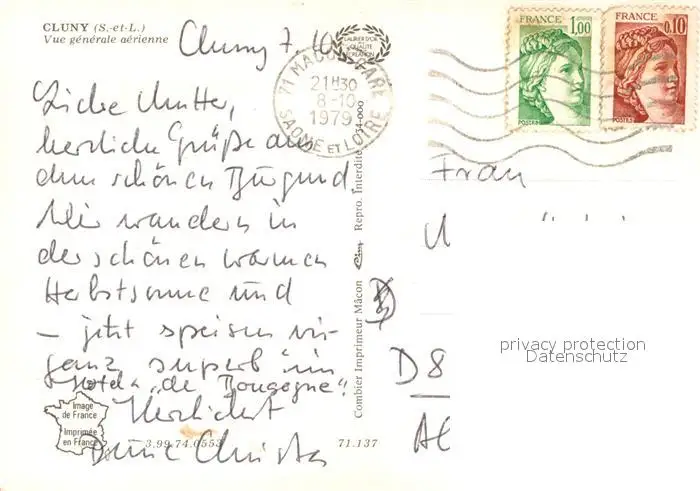 CLUNY (S.-et-L.)
Vue générale aérienne
Cluny 7. 10
QUALITÉ
71 MACON GARE
21H30
8-10
1979
SAONE ET LOIRE
FRANCE 1,00
POSTES
FRANCE 0,10
POSTES
Liebe Mutter,
herzliche Grüße aus
dem schönen Burgund.
Wir wandern in
der schönen warmen
Herbstsonne und
– jetzt speisen wir
ganz superb im
Hotel „de Bourgogne".
Herzlichst
Deine Christa
Image
de France
Imprimée
en France
3.99.74.0553
71.137
Combier Imprimeur Mâcon
Repro. Interdite
Frau
D 8
privacy protection
Datenschutz